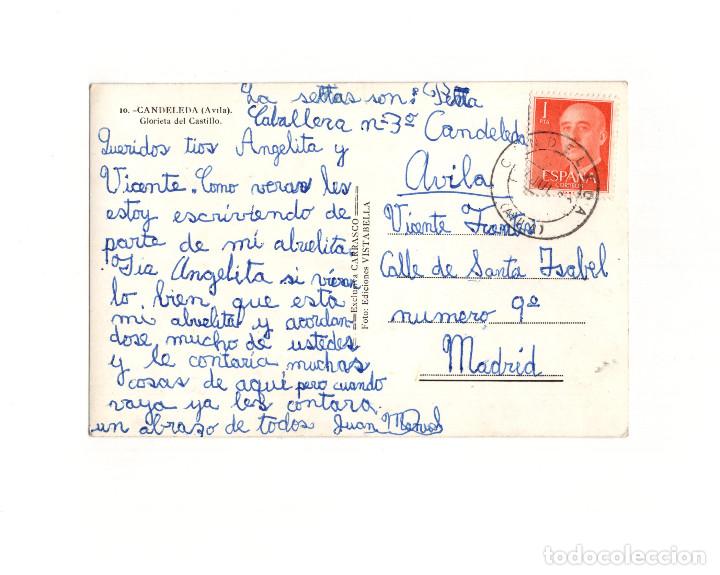 10. -CANDELEDA (Avila).
Glorieta del Castillo.
La settas son:
Caballera nº 3º Candeleda
Avila
Queridos tios Angelita y
Vicente. Como veras les
estoy escriviendo de
parte de mi abuelita.
Tia Angelita si vieras
lo bien que esta
mi abuelita y acordan-
dose mucho de ustedes
y le contaria muchas
cosas de aqui pero cuando
vaya ya les contara.
un abraso de todos Juan Manuel
Exclusiva CARRASCO
Foto: Ediciones VISTABELLA
Vicente
Calle de Santa Isabel
numero 9º
Madrid
1
PTA
ESPAÑA
CORREOS
CANDELEDA
(AVILA)
todocoleccion